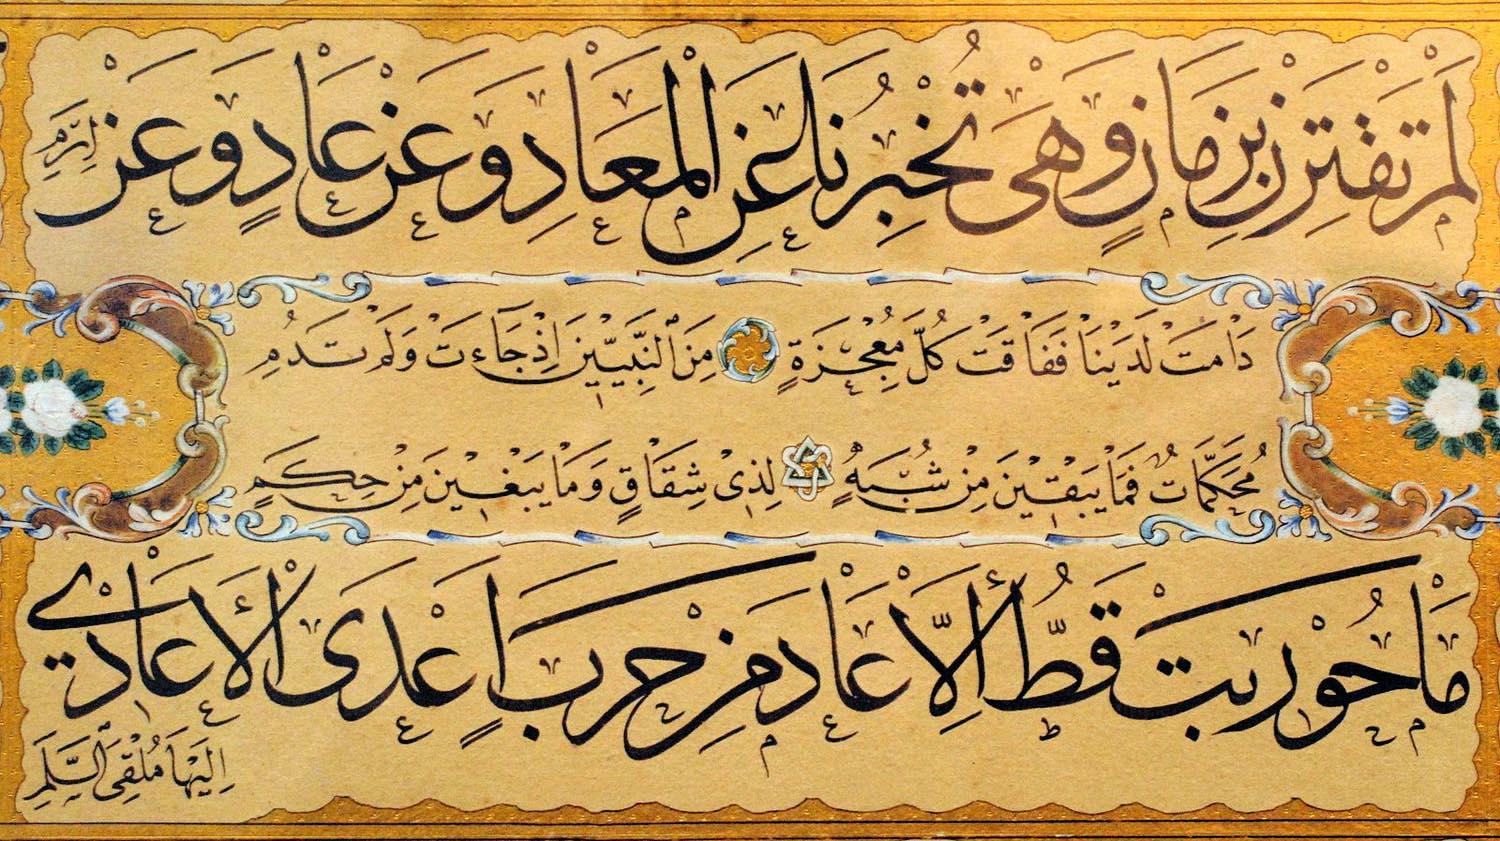 لَمْ تَقْتَرِنْ بِزَمَانٍ وَهْيَ تُخْبِرُنَا عَنِ الْمَعَادِ وَعَنْ عَادٍ وَعَنْ اِرَمِ
دَامَتْ لَدَيْنَا فَفَاقَتْ كُلَّ مُعْجِزَةٍ مِنَ النَّبِيّٖينَ اِذْ جَاءَتْ وَلَمْ تَدُمِ
مُحَكَّمَاتٌ فَمَا يُبْقٖينَ مِنْ شُبَهٍ لِذٖى شِقَاقٍ وَمَا يَبْغٖينَ مِنْ حِكَمٍ
مَا حُورِبَتْ قَطُّ اِلَّا عَادَ مِنْ حَرَبٍ اَعْدَى الْاَعَادٖى
اِلَيْهَا مُلْقِىَ السَّلَمِ